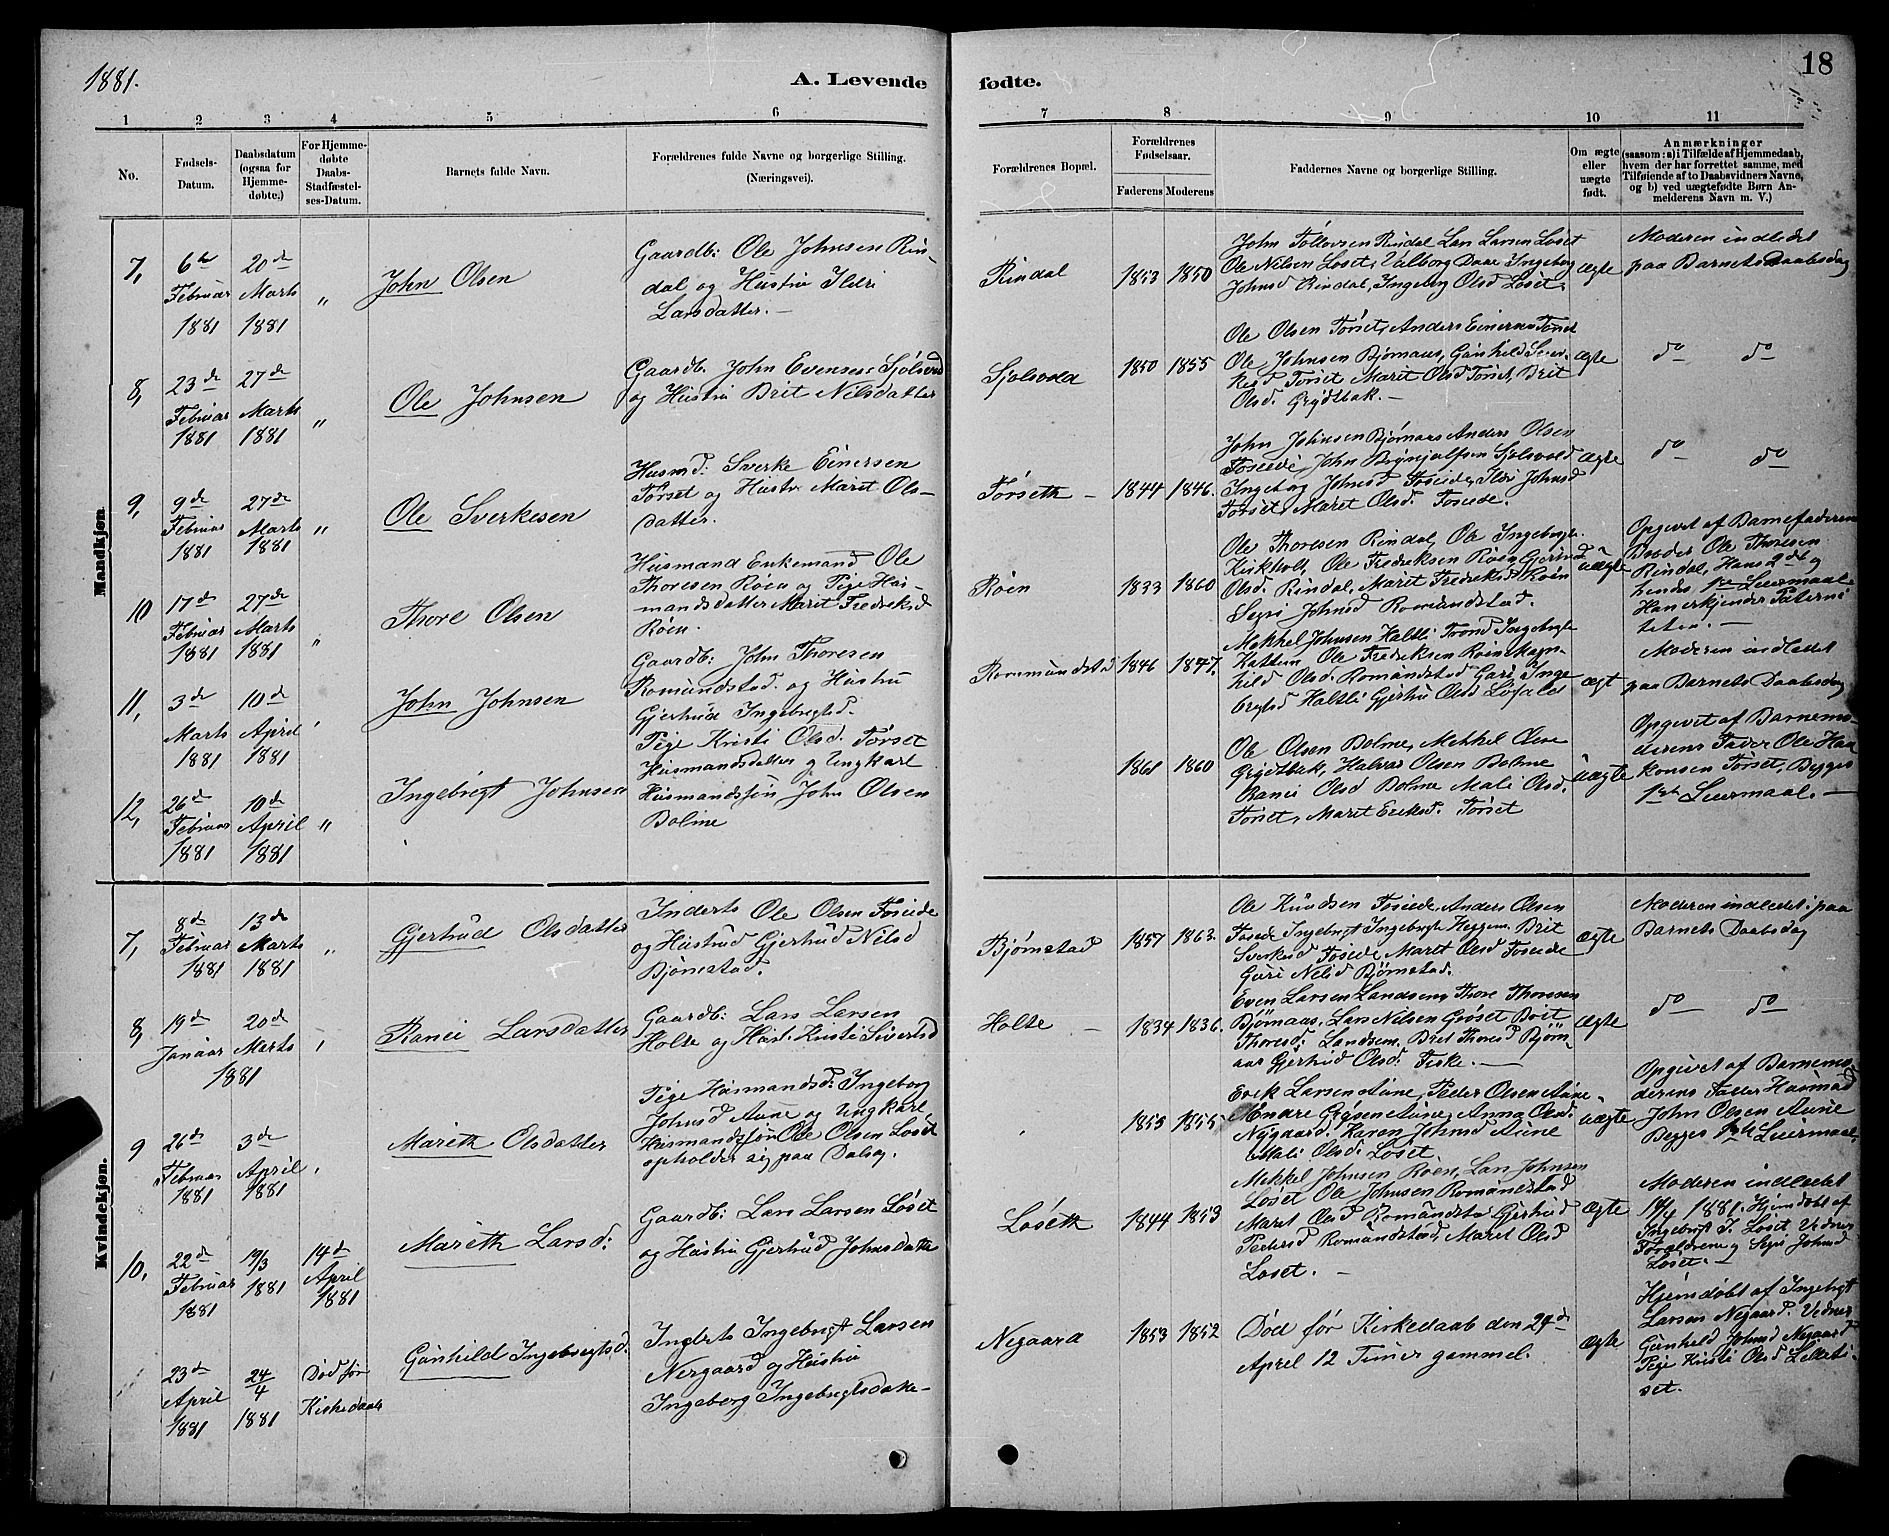 1881.
A. Levende
fødte.
18
1
2
3
4
5
6
7
8
9
10
11
No.
Fødsels-
Datum.
Daabsdatum
(ogsaa for
Hjemme-
døbte.)
For Hjemme-
døbte
Daabs-
Stadfæstel-
ses-Datum.
Barnets fulde Navn.
Forældrenes fulde Navne og borgerlige Stilling.
(Næringsvei).
Forældrenes Bopæl.
Forældrenes
Fødselsaar.
Faderens
Moderens
Faddernes Navne og borgerlige Stilling.
Om ægte
eller
uægte
født.
Anmærkninger
(saasom: a) i Tilfælde af Hjemmedaab,
hvem der har forrettet samme, med
Tilføiende af to Daabsvidners Navne,
og b) ved uægtefødte Børn An-
melderens Navn m. V.)
Mandkjøn.
7,
6te
Februar
1881
20de
Marts
1881
"
John Olsen
Gaardb: Ole Johnsen Rin-
dal og Hustru Ildri
Larsdatter. —
Rindal
1853
1850
John Tollovsen Rindal Lars Larsen Løset
Ole Nilsen Løset, Valborg Daae Ingebog
Johnsd Rindal, Ingebog Olsd Løset.
ægte
Moderen indledet
paa Barnets Daabsdag
8,
23de
Februar
1881
27de
Marts
1881
"
Ole Johnsen
Gaardb. John Evensen Sjølsvold
og Hustru Brit Nilsdatter
Sjølsvold
1850
1855
Ole Olsen Torset, Anders Einersen Torset
Ole Johnsen Bjørnaas, Gunhild Sver-
kesd Torset, Marit Olsd Torset, Brit
Olsd. Grydtbak. —
ægte
do do
9,
9de
Februar
1881
27de
Marts
1881
"
Ole Sverkesen
Husmd: Sverke Einersen
Torset og Hustru Maret Ols-
datter.
Torseth —
1844
1846.
John Johnsen Bjørnaas Anders Olsen
Foseide, John Brynjulfsen Sjølsvold
Ingebog Johnsd Foseide, Ildri Johnsd
Torset, Maret Olsd. Foseide.
ægte
do do
10
17de
Februar
1881
27de
Marts
1881
"
Thore Olsen
Husmand Enkemand Ole
Thoresen Røen og Pige Hus-
mandsdatter Marit Fredriksd
Røen.
Røen
1833
1860
Ole Thoresen Rindal, Ole Ingebrigts.
Kirkholt, Ole Fredriksen Røen, Gjertrud
Olsd. Rindal, Maret Fredriksd Røen
Segri Johnsd Romundstad.
uægte
Opgivet af Barnefaderens
Broder Ole Thoresen
Rindal, Hans 2det og
hendes 1ste Leiermaal.
Han erkjender Paterni-
teten. —
11,
3de
Marts
1881
10de
April
1881
John Johnsen
Gaardb: John Thoresen
Romundstad. og Hustru
Gjertrud Ingebrigtsd.
Rommundstad
1846
1847.
Mekkel Johnsen Haltli Trond Ingebrigts
Kattum Ole Fredriksen Røen Ragn-
hild Olsd. Romundstad Guri Inge
brigtsd Haltli Gjertru Olsd Løfald
ægt
Moderen indledet
paa Barnets Daabsdag
12,
26de
Februar
1881
10de
April
1881
"
Ingebrigt Johnsen
Pige Kristi Olsd. Torset
Husmandsdatter og Ungkarl
Husmandssøn John Olsen
Bolme
1861
1860
Ole Olsen Bolme, Mekkel Olsen
Grydtbak, Halvor Olsen Bolme
Ranei Olsd Bolme Mali Olsd.
Torset, Maret Eriksd. Torset
uægte
Opgivet af Barnemo-
derens Fader Ole Haa
konsen Torset, Begges
1ste Leiermaal. —
Kvindekjøn.
7,
8de
Februar
1881
13de
Marts
1881
"
Gjertrud Olsdatter
Inderts Ole Olsen Foseide
og Hustrud Gjertrud Nilsd
Bjørnstad.
Bjørnstad
1857
1863.
Ole Knudsen Foseide, Anders Olsen
Foseide Ingebrigt Ingebrigts Heggem. Brit
Sverkesd Foseide, Maret Olsd Foseide
Guri Nelsd Bjørnstad.
ægte
Moderen indledet paa
Barnets Daabsdag
8,
19de
Januar
20de
Marts
1881
Ranei Larsdatter
Gaardb: Lars Larsen
Holte og Hust. Kristi Sivertsd
Holte —
1834
1836.
Even Larsen Landsem, Thore Thoresen
Bjørnaas, Lars Nilsen Grøset Brit
Thoresd. Landsem. Bret Thoresd Bjørn-
aas Gjertrud Olsd. Fiske. —
ægte
do do
9
26de
Februar
1881
3de
April
1881
Mareth Olsdatter
Pige Husmandsd: Ingeborg
Johnsd Aune og Ungkarl
Husmandssøn Ole Olsen Løset
opholder sig paa Dalsøg.
1855
1855
Erik Larsen Aune, Peder Olsen Aune
Endre Olsen Aune, Anna Olsd.
Nygaard. Karen Johnsd Aune
Mali Olsd: Løset.
uægte
Opgivet af Barnemo-
derens Fader Husmad
John Olsen Aune
Begges 1ste Leiermaal.
10,
22de
Februar
1881
19/3
1881
14de
April
1881
Mareth Larsd:
Gaardb: Lars Larsen Løset
og Hustru Gjertrud Johnsdatter
Løseth
1844
1853
Mekkel Johnsen Røen, Lars Johnsen
Løset Ole Johnsen Romundstad
Maret Olsd Romundsta Gjertrud
Pedersd Romundstad, Maret Olsd
Løset. —
ægte
Moderen indledet
14/4 1881. Hjemdøbt af
Ingebrigt J. Løset Vedner
Forældrene og Segri Johnsd
Løset. —
23de
April
1881
24/4
1881
Død før
Kirkedaab
Gunhild Ingebrigtsd.
Inderts Ingebrigt Larsen
Nergaard og Hustru
Ingeborg Ingebrigtsdatte-
Negaard
1853
1852
Død før Kirkedaab den 24de
April 12 Timer gammel.
ægte
Hjemdøbt af Ingebrigt
Larsen Negaard. Vedner
Gunhild Johnsd Negaard
Pige Kristi Olsd Lilleti-
set.